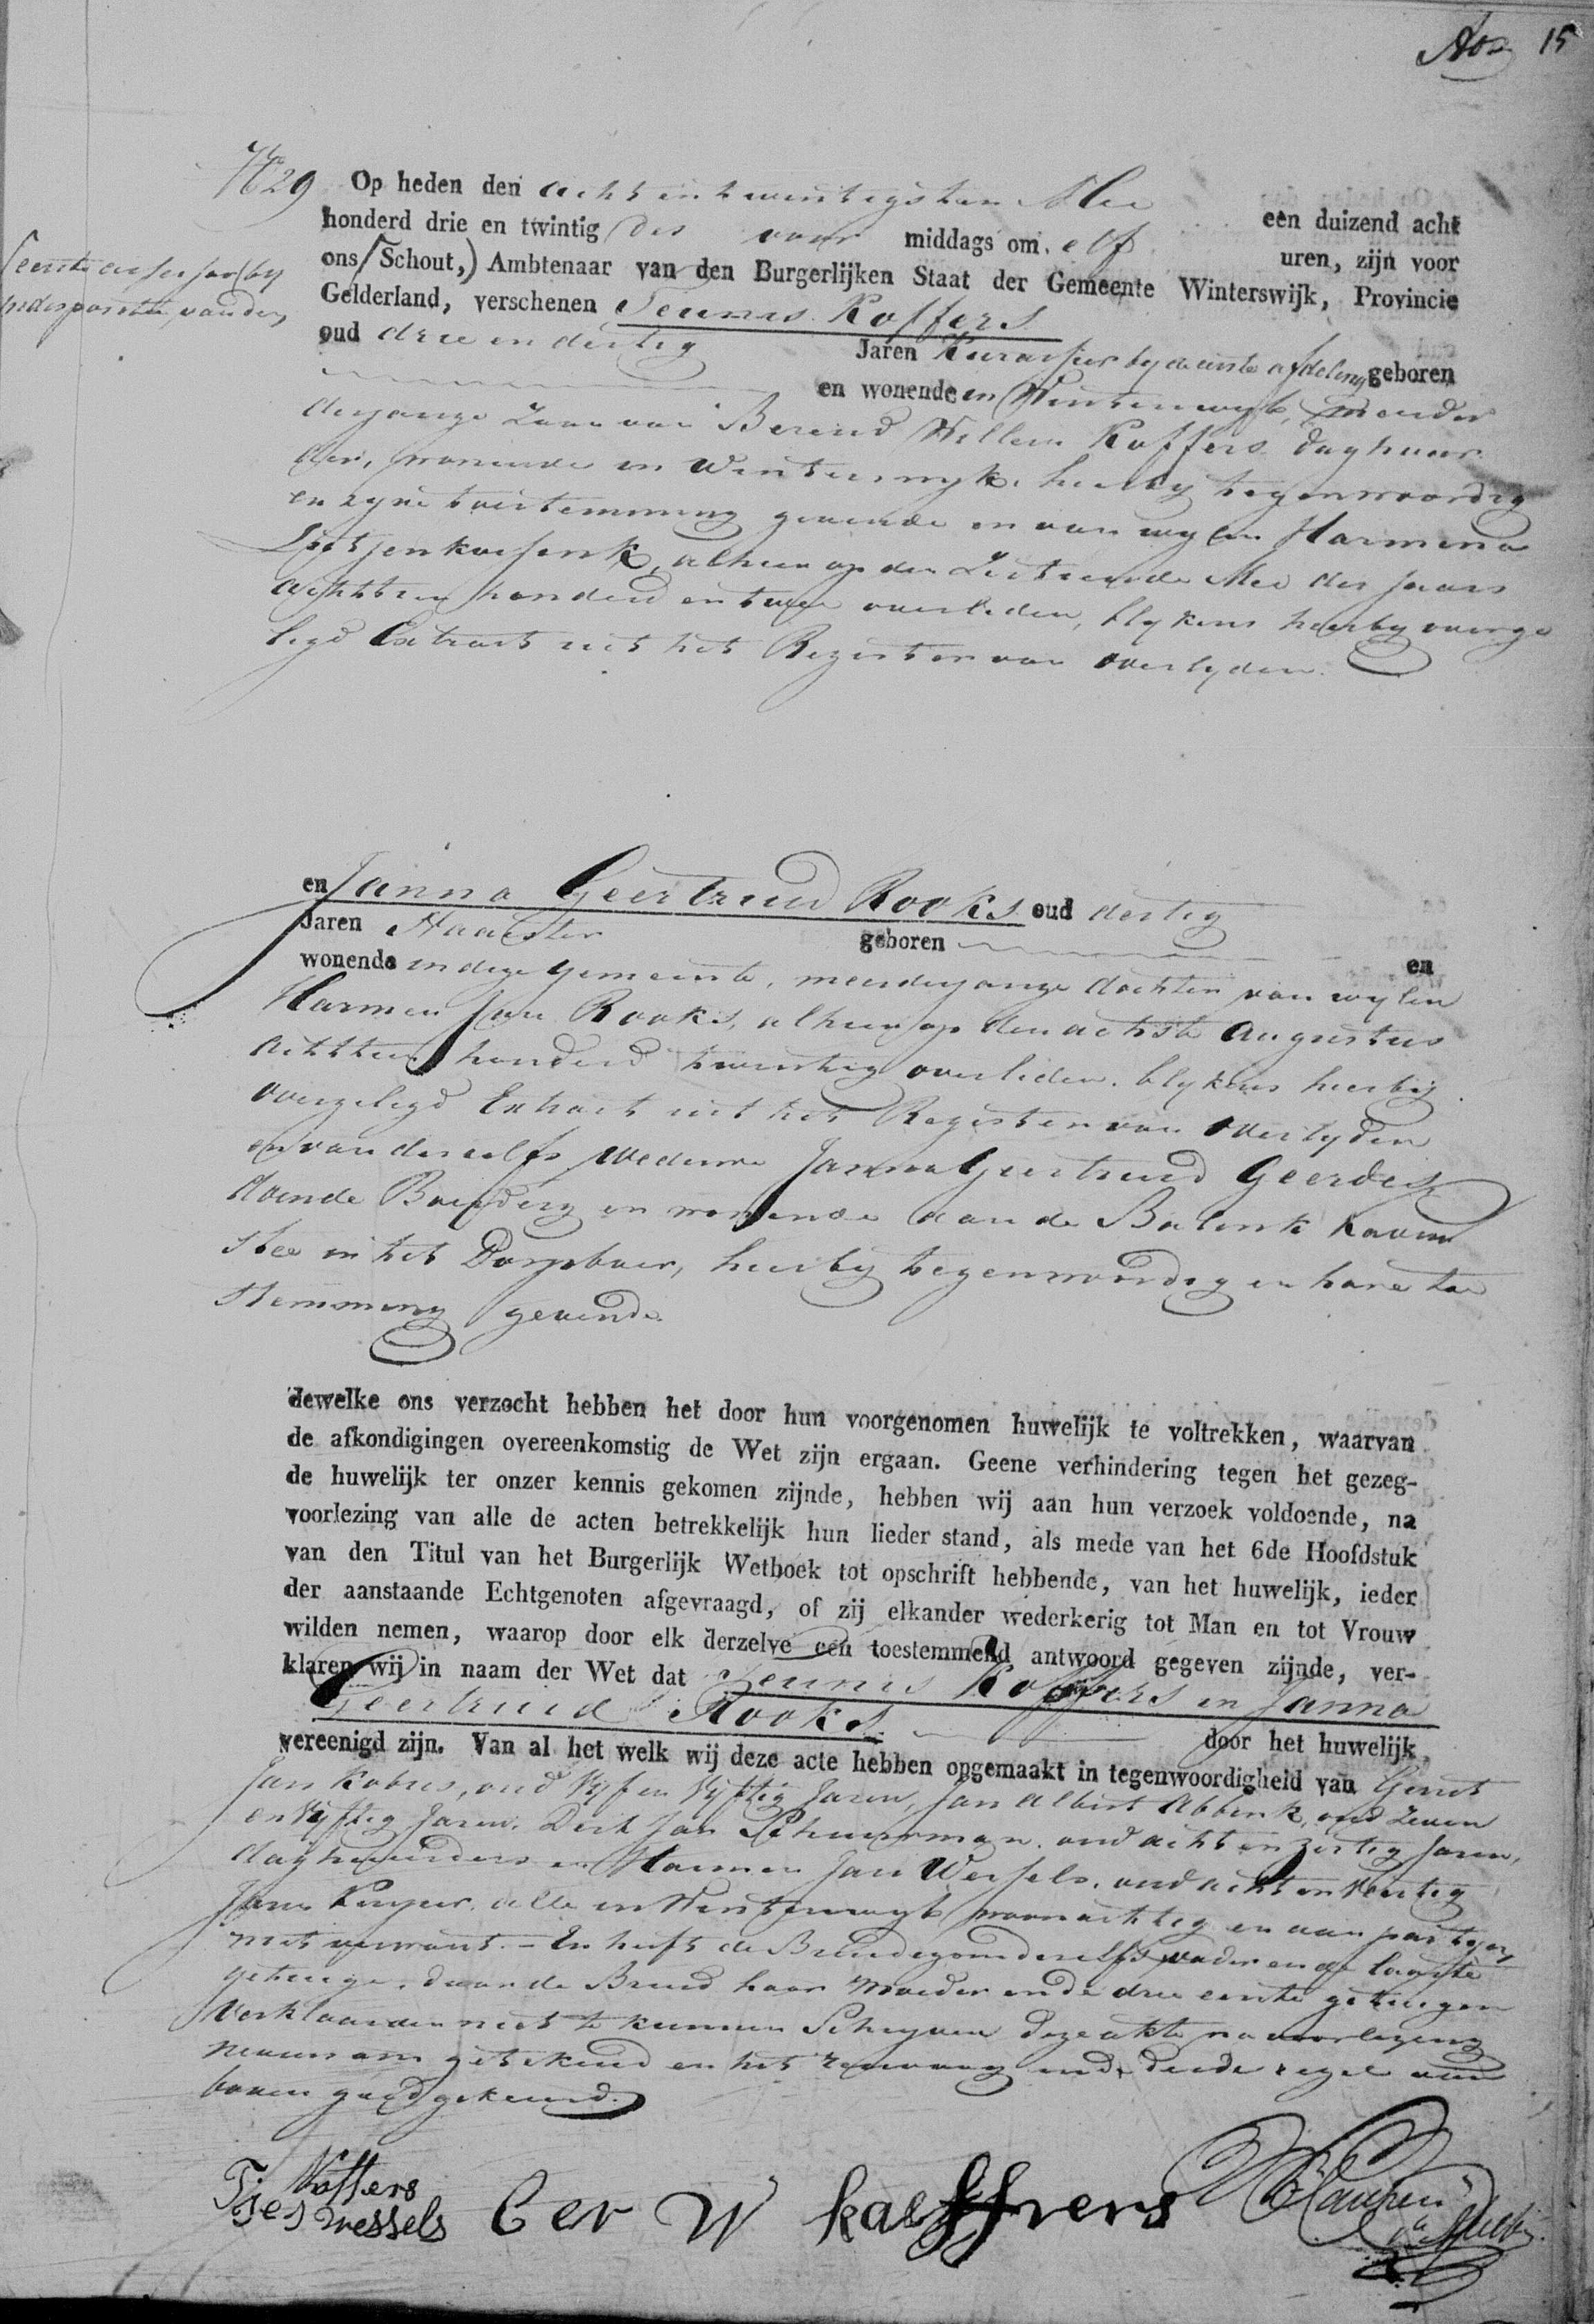 15
No 29 Op heden den acht en twintigsten Mei een duizend acht
honderd drie en twintig des voor middags om elf uren, zijn voor
eerste assessor by
ons (Schout,) Ambtenaar van den Burgerlijken Staat der Gemeente Winterswijk, Provincie
Gelderland, verschenen Teunis Koffers
oud drie en dertig Jaren Kurassier by de eerste afdeling geboren
en wonende in Winterswyk, meerder
derjarige Zoon van Berend Willem Koffers daghuur
der, wonende in Winterswyk. hierby tegenwoordig
en zyne toestemming gevende en van wylen Harmina
alhier op den Mei des Jaars
achttien honderd en twee overleden, blykens hierby overge
legd Extract uit het Register van overlyden.
en Janna Geertruid Rooks oud dertig
Jaren Naaister geboren en
wonende in deze gemeente, meerderjarige dochter van wylen
Harmen Jan Rooks, alhier op den achtste Augustus
achttien honderd twintig overleden. blykens hierbij
overgelegd Extract uit het Register van overlyden
en van deszelfs Weduwe Janna Geertruid Geerdes
doende Boerdery en wonende aan de Balink kaven
stee in het Dorpbuur, hierby tegenwoordig en hare toe
stemming gevende.
dewelke ons verzocht hebben het door hun voorgenomen huwelijk te voltrekken, waarvan
de afkondigingen overeenkomstig de Wet zijn ergaan. Geene verhindering tegen het gezeg-
de huwelijk ter onzer kennis gekomen zijnde, hebben wij aan hun verzoek voldoende, na
voorlezing van alle de acten betrekkelijk hun lieder stand, als mede van het 6de Hoofdstuk
van den Titul van het Burgerlijk Wetboek tot opschrift hebbende, van het huwelijk, ieder
der aanstaande Echtgenoten afgevraagd, of zij elkander wederkerig tot Man en tot Vrouw
wilden nemen, waarop door elk derzelve een toestemmend antwoord gegeven zijnde, ver-
klaren wij in naam der Wet dat Teunis Koffers en Janna
Geertruid Rooks door het huwelijk
vereenigd zijn. Van al het welk wij deze acte hebben opgemaakt in tegenwoordigheid van Gerrit
Jan Kobus, oud Vyf en Vyftig Jaren, Jan Albert Abbink, oud Zeven
en Vyftig Jaren. Derk Jan Schuurman. oud acht en Zestig Jaren,
daghuurders en Harmen Jan Wessels. oud acht en Veertig
Jaren alle in Winterswyk woonachtig en aan partyen
niet verwant. - En heeft de Bruidegom deszelfs vader en de laatste
getuige, daar de Bruid haar Moeder en de drie eerste getuigen
verklaarden niet te kunnen Schryven deze akte na voorlezing
nevens ons getekend en het renvooy in de derde regel van
boven goedgekeurd.
T Koffers
wessels Ber W kaeffers